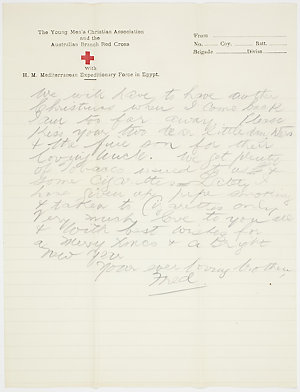 The Young Men's Christian Association
and the
Australian Branch Red Cross
With
H. M. Mediterranean Expeditionary Force in Egypt.
From
No. Coy. Batt.
Brigade Division
We will have to have another
Christmas when I come back
I am too far away. Please
Kiss your two dear little
& the fine son for their
loving Uncle. We get plenty
of Tobacco issued to us &
some Cigarettes
have given up pipe smoking
& taken to Cigarettes only
Very much love to you all
& with best wishes for
a Merry Xmas & a Bright
New Year
Your ever loving brother
Fred